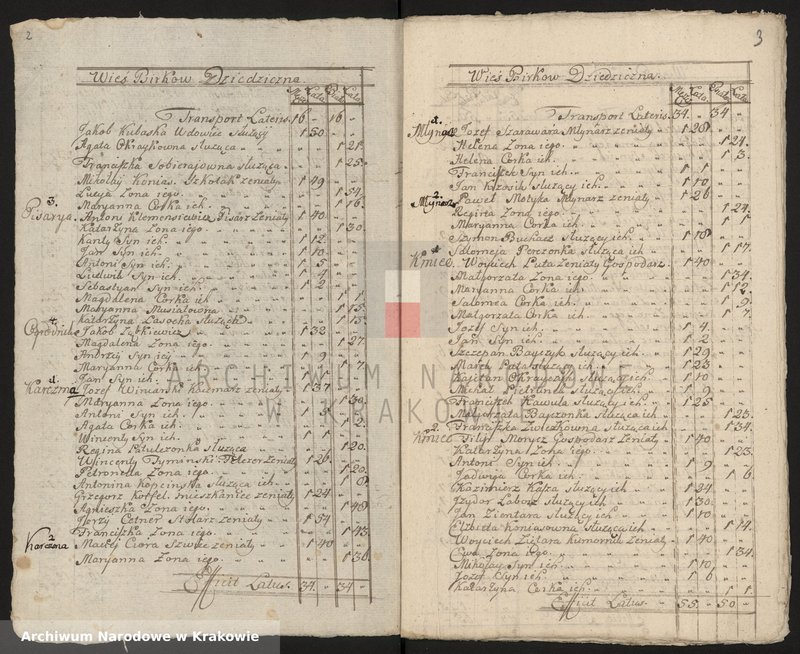 2
Wieś Birkow Dziedziczna.
Męsz. Lata. Biał. Lata.
Transport Lateris. 16 - 16 -
Jakob Kubaska Wdowiec służący 1 50
Agata Okraykowna służąca 1 21
Franciszka Sobierajowna służąca 1 25
Mikołay Konias Szkolak żeniaty 1 49
Lucya Żona iego 1 34
Maryanna Corka ich 1 16
3. Pisarya. Antoni Klemensiewicz Pisarz żeniaty 1 40
Katarzyna Żona iego 1 30
Karol Syn ich 1 12
Jan Syn ich 1 10
Antoni Syn ich 1 5
Ludwik Syn ich 1 4
Sebastyan Syn ich 1 2
Magdalena Corka ich 1 1
Maryanna Musiałowna 1 15
Katarzyna Lasocha służąca 1 15
Jakob Ząbkiewicz 1 32
Magdalena Żona iego 1 27
Andrzey Syn icy 1 9
Maryanna Corka ich 1 7
Jan Syn ich 1 1
1. Karczma Jozef Winiarski Karczmarz żeniaty 1 37
Maryanna Żona iego 1 30
Antoni Syn ich 1 3
Agata Corka ich 1 2
Wincenty Syn ich 1 1
Regina Pitulezonka służąca 1 20
Wincenty Tyminski żeniaty 1 26
Petronella Żona iego 1 20
Antonina Kopcinska służąca ich 1 8
Grzegorz Korfel mieszkaniec żeniaty 1 24
Agnieszka Żona iego 1 40
Jerzy Cetner Stolarz żeniaty 1 54
Franciszka Żona iego 1 43
2 Karczma Maciey Ciora Szwiec żeniaty 1 40
Maryanna Żona iego 1 36
Efficit Latus. 34 - 34 -
3
Wieś Birkow Dziedziczna.
Transport Lateris. 34 - 34 -
1. Młynarz Jozef Szarawara Młynarz żeniaty 1 28
Helena Żona iego 1 24
Helena Corka ich 1 3
Franciszek Syn ich 1 1
Jan Krzosik służący ich 1 10
2. Młynarz Paweł Motyka Młynarz żeniaty 1 26
Regina Żona iego 1 24
Maryanna Corka ich 1
Szymon Buchacz służący ich 1 18
Salomeja Perczonka służąca ich 1 17
1 Kmiec Woyciech Luta żeniaty Gospodarz 1 40
Małgorzata Żona iego 1 34
Maryanna Corka ich 1 12
Salomea Corka ich 1 9
Małgorzata Corka ich 1 7
Jozef Syn ich 1 4
Jan Syn ich 1 2
Szczepan Bayczyk służący ich 1 29
służący ich 1 23
Kajetan służący ich 1 10
Michał służący ich 1 9
Franciszek Kawula służący ich 1 25
Małgorzata Bajczonka służąca ich 1 23
Franciszka służąca ich 1 34
2 Kmiec Filip Morycz Gospodarz żeniaty 1 40
Katarzyna Żona iego 1 23
Antoni Syn ich 1 9
Jadwiga Corka ich 1 6
Kazimierz Kajza służący ich 1 24
Izydor Labosz służący ich 1 30
Jan Zientara służący ich 1 10
Elżbieta Koniasowna służąca ich 1 14
Woyciech Zietara Komornik żeniaty 1 40
Ewa Żona iego 1 34
Mikołay Syn ich 1 10
Jozef Syn ich 1 6
Katarzyna Corka ich 1 1
Efficit Latus. 55 - 50 -
ARCHIWUM NARODOWE
W KRAKOWIE
Archiwum Narodowe w Krakowie